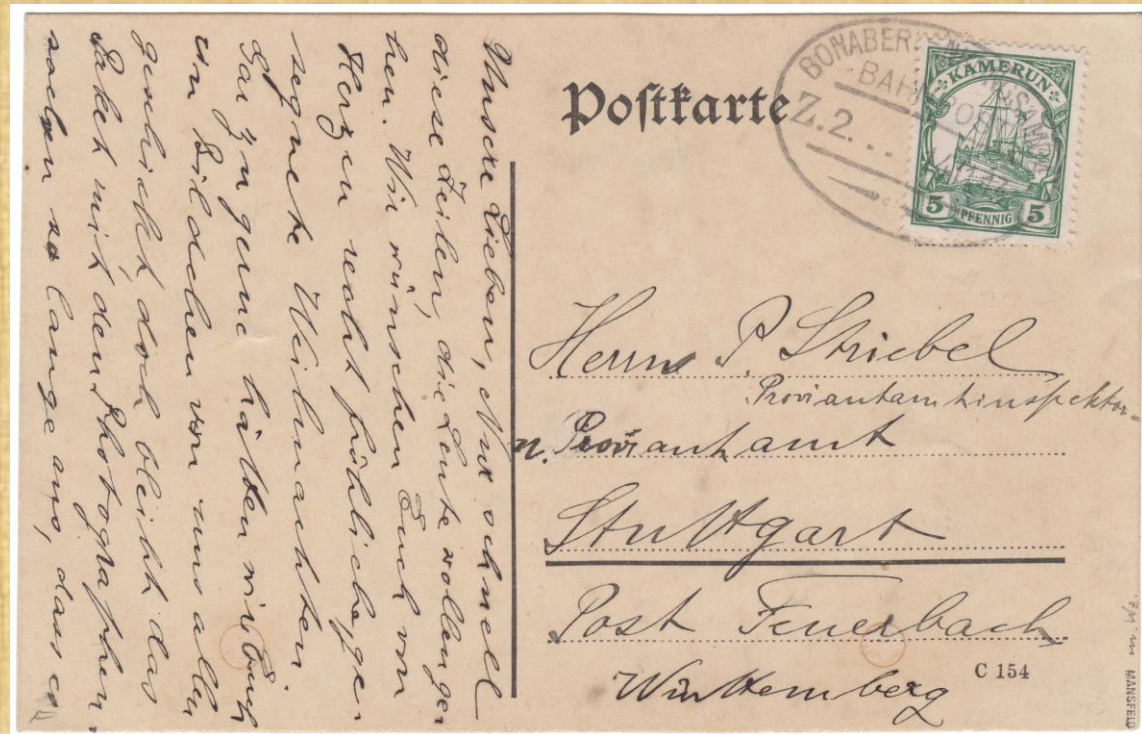 Postkarte
BONABERI
BAHNPOST
Z. 2. . .
KAMERUN
5 PFENNIG 5
Herrn P. Striebel
Proviantamtinspektor
n. Proviantamt
Stuttgart
Post Feuerbach
Württemberg
C 154
MANSFELD
Unsere Lieben, Nur schnell
diese Zeilen, die Leute wollen ger
hen. Wir wünschen Euch von
Herzen recht fröhliche ge-
segnete Weihnachten.
Gar zu gerne hätten wir Euch
ein Bildchen von uns allen
geschickt, doch bleibt das
Paket mit den Photografhen-
sachen so lange aus, dass es